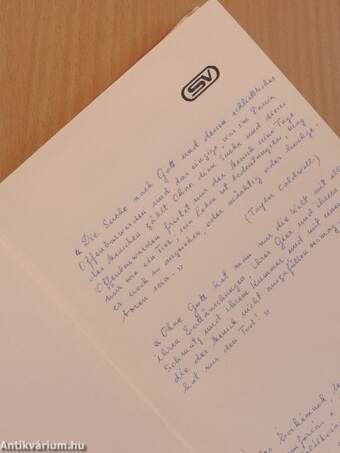 SV
« Die Suche nach Gott und dessen schließliches
Offenbarwerden sind das einzige was im Leben
des Menschen zählt. Ohne diese Suche und dieses
Offenbarwerden fristet nur der Mensch seine Tage
nur wie ein Tier, sein Leben ist bedeutungslos, mag
er noch so angesehen, oder mächtig oder hochge-
boren sein. »
(Taylor Caldwell)
« Ohne Gott hat man nur die Welt mit all
ihren Enttäuschungen, ihrer Gier und ihrem
Schmutz und ihrem Kummer und
die der Mensch nicht ausgefüllt vermag
hat nur den Tod! »
Antikvárium.hu